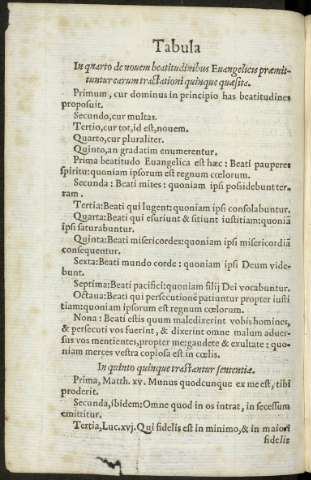 Tabula
In quarto de nouem beatitudinibus Euangelicis præmit-
tuntur earum tractationi quinque quæsita.
Primum, cur dominus in principio has beatitudines
proposuit.
Secundo, cur multas.
Tertio, cur tot, id est, nouem.
Quarto, cur pluraliter.
Quinto, an gradatim enumerentur.
Prima beatitudo Euangelica est hæc: Beati pauperes
spiritu: quoniam ipsorum est regnum cœlorum.
Secunda: Beati mites: quoniam ipsi possidebunt ter-
ram.
Tertia: Beati qui lugent: quoniam ipsi consolabuntur.
Quarta: Beati qui esuriunt & sitiunt iustitiam: quoniã
ipsi saturabuntur.
Quinta: Beati misericordes: quoniam ipsi misericordiã
consequentur.
Sexta: Beati mundo corde: quoniam ipsi Deum vide-
bunt.
Septima: Beati pacifici: quoniam filij Dei vocabuntur.
Octaua: Beati qui persecutionẽ patiuntur propter iusti
tiam: quoniam ipsorum est regnum cœlorum.
Nona: Beati estis quum maledixerint vobis homines,
& persecuti vos fuerint, & dixerint omne malum aduer-
sus vos mentientes, propter me: gaudete & exultate: quo-
niam merces vestra copiosa est in cœlis.
In quinto quinque tractantur sententiæ.
Prima, Matth. xv. Munus quodcunque ex me est, tibi
proderit.
Secunda, ibidem: Omne quod in os intrat, in secessum
emittitur.
Tertia, Luc. xvj. Qui fidelis est in minimo, & in maiori
fidelis